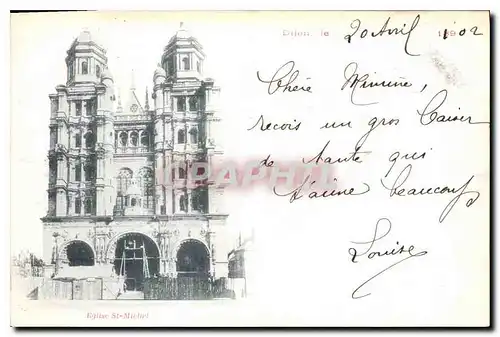 Dijon, le 20 Avril 1902
Chère Mimine,
reçois un gros Caiser
de Tante qui
t'aime beaucoup
Louise
CARTES
CPARAMA
Eglise St-Michel